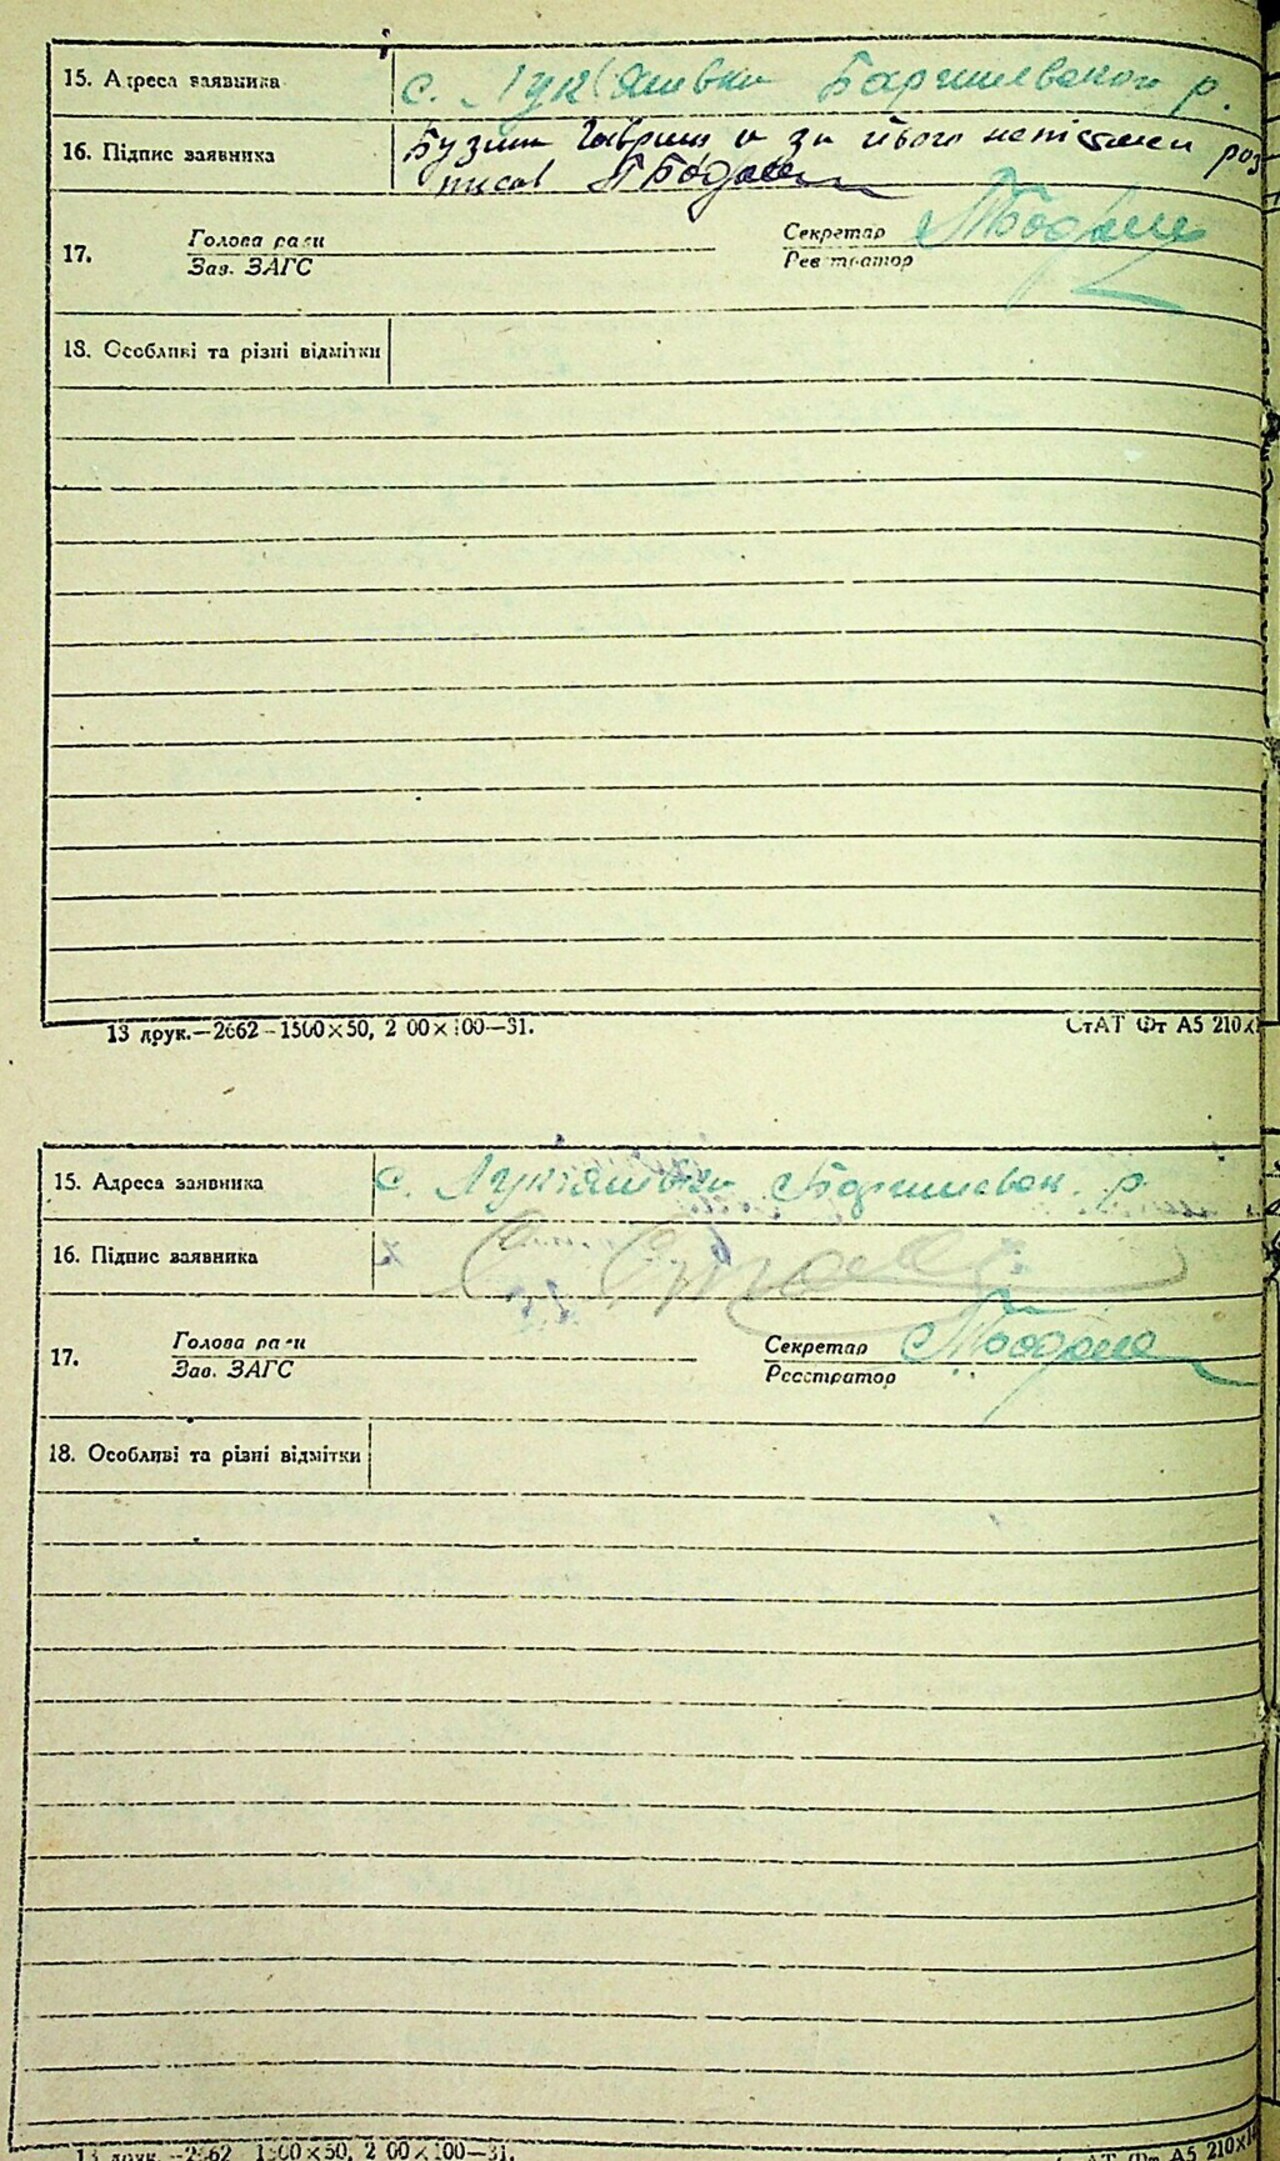 15. Адреса заявника с. Лук'янівка Баришевского р.
16. Підпис заявника Бузин Гаврило а за його неписмен роз
писав
17. Голова ради Секретар
Зав. ЗАГС Реєстратор
18. Особливі та різні відмітки
13 друк.—2662—1500×50, 2 00×100—31. СтАТ Фт А5 210×
15. Адреса заявника с. Лук'янівка Баришевск. р.
16. Підпис заявника
17. Голова ради Секретар
Зав. ЗАГС Реєстратор
18. Особливі та різні відмітки
13 друк.—2662 1500×50, 2 00×100—31. СтАТ Фт А5 210×14